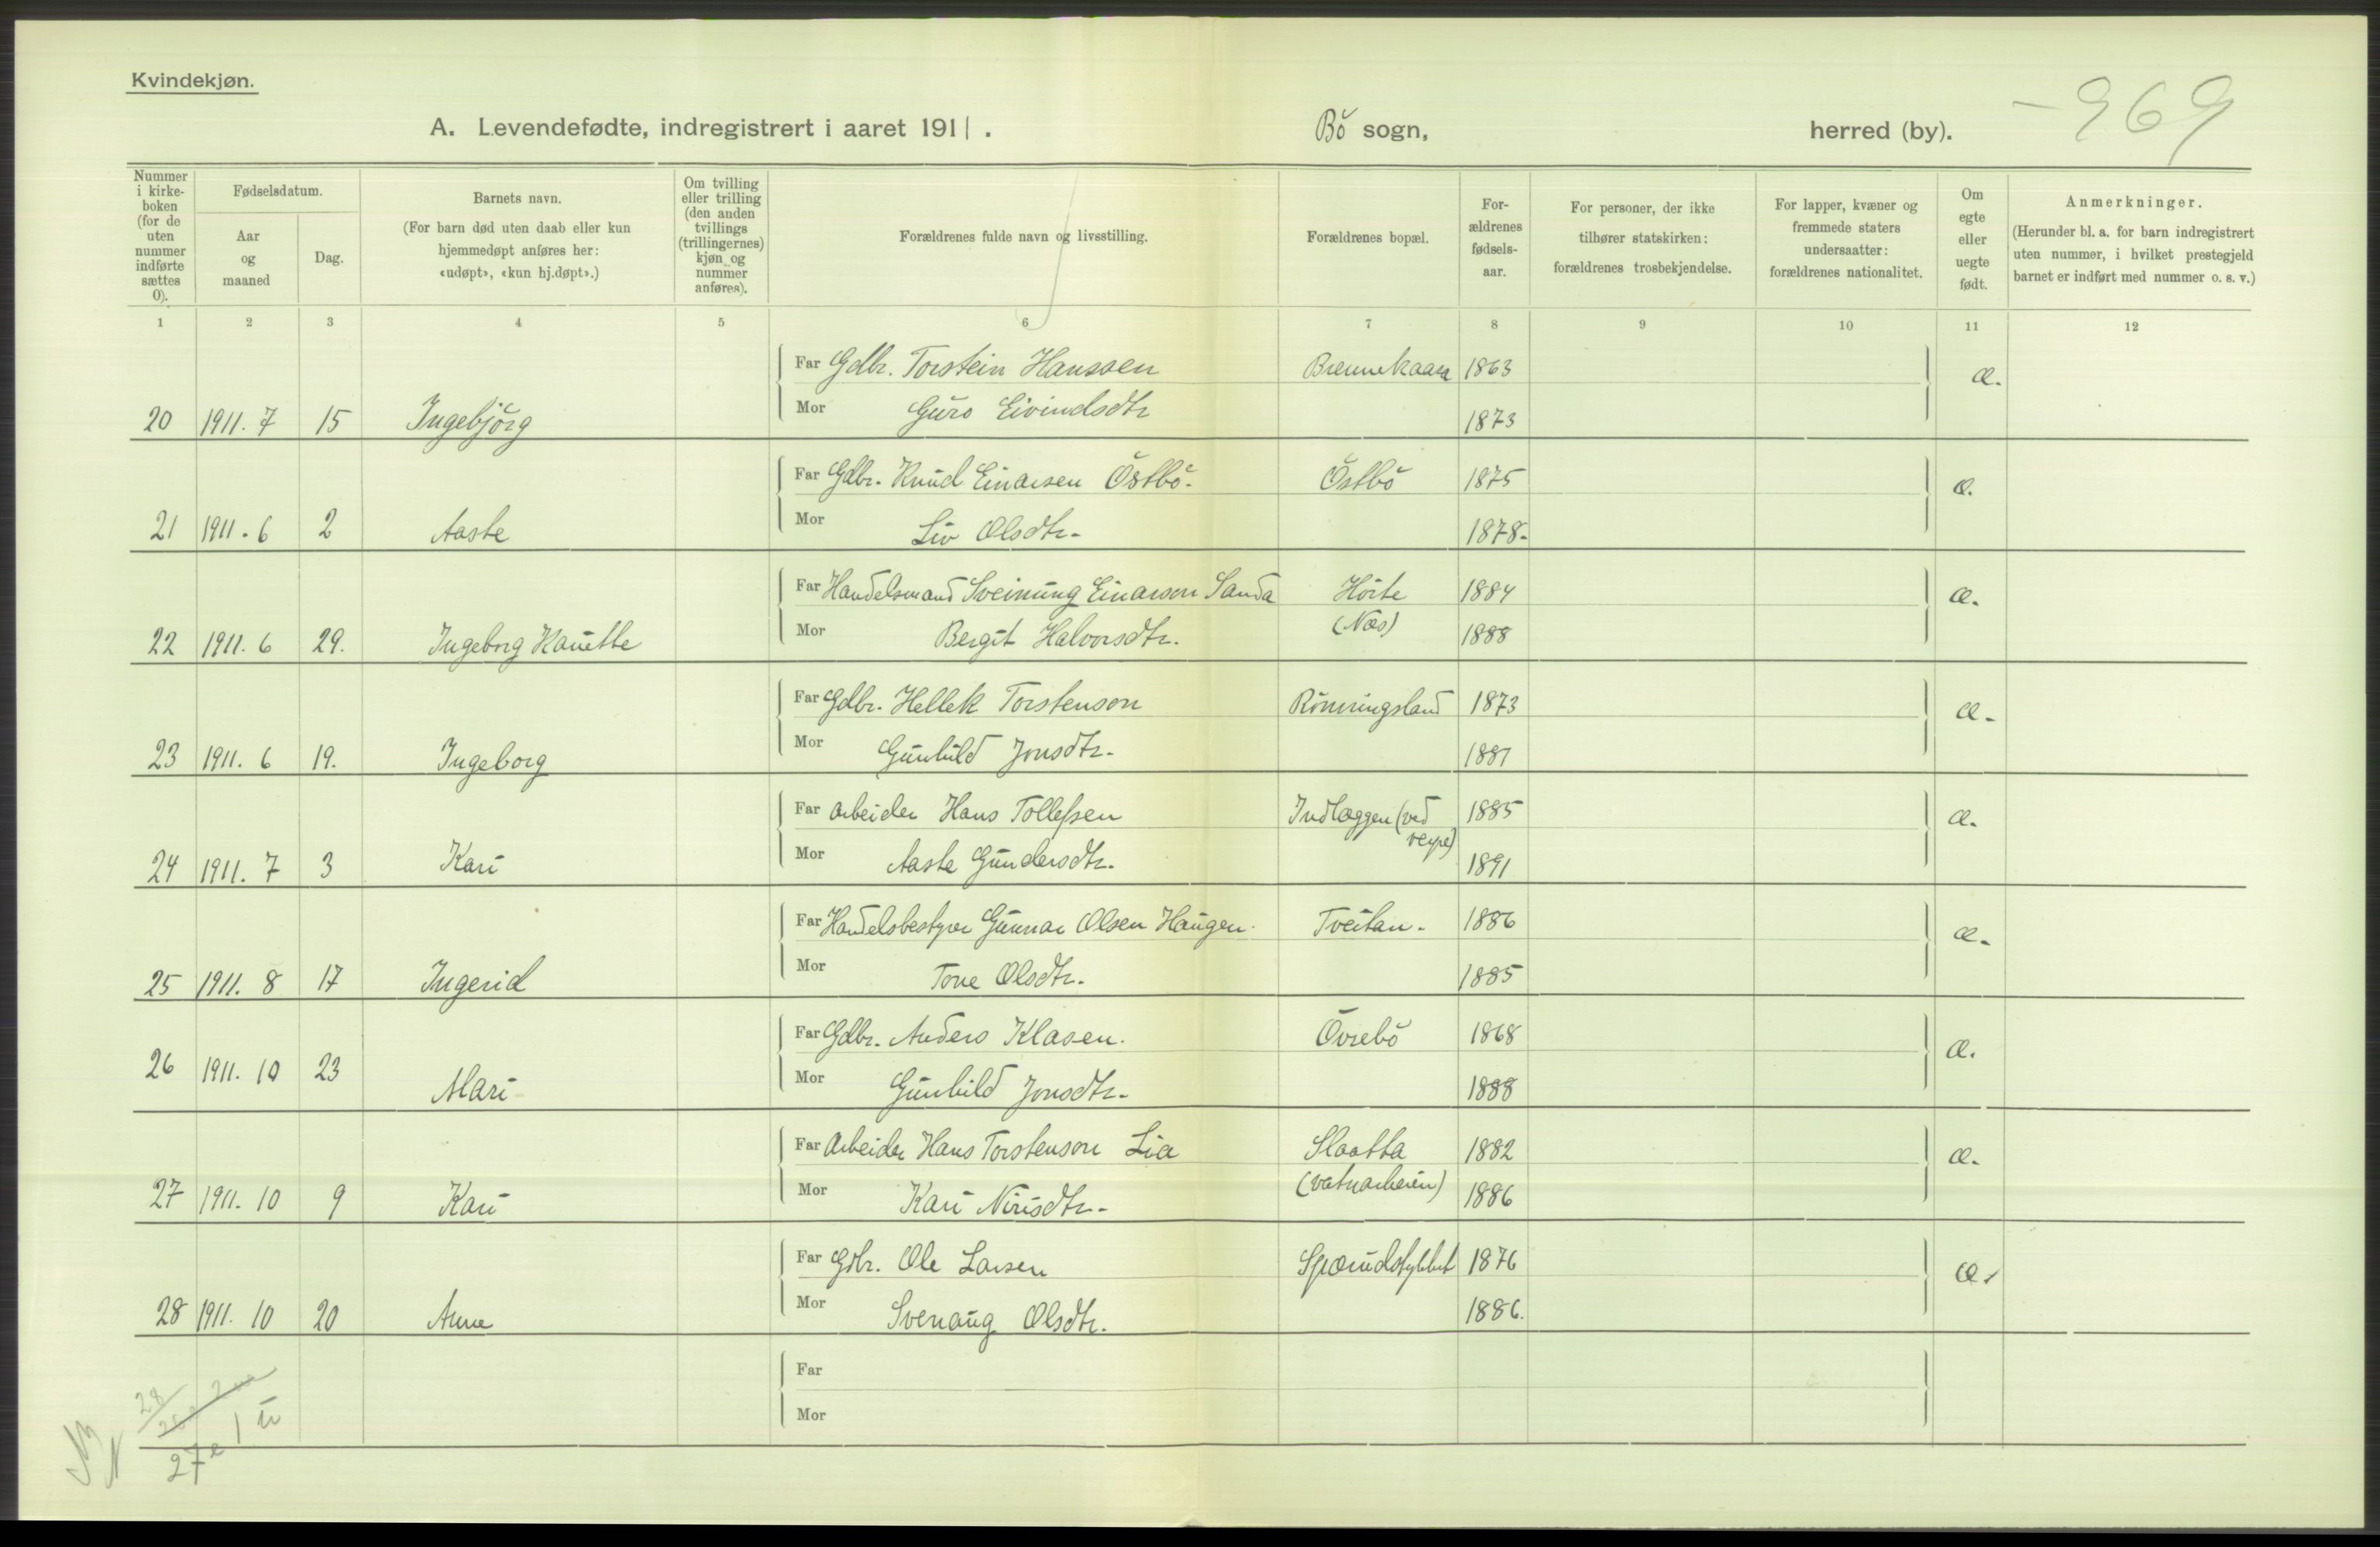 Kvindekjøn.
A. Levendefødte, indregistrert i aaret 1911. Bö sogn, herred (by). -969
Nummer i kirke-boken (for de uten nummer indførte sættes 0).
Fødselsdatum.
Aar og maaned
Dag.
Barnets navn.
(For barn død uten daab eller kun hjemmedøpt anføres her: «udøpt», «kun hj.døpt».)
Om tvilling eller trilling (den anden tvillings (trillingernes) kjøn og nummer anføres).
Forældrenes fulde navn og livsstilling.
Forældrenes bopæl.
For-ældrenes fødsels-aar.
For personer, der ikke tilhører statskirken: forældrenes trosbekjendelse.
For lapper, kvæner og fremmede staters undersaatter: forældrenes nationalitet.
Om egte eller uegte født.
Anmerkninger.
(Herunder bl. a. for barn indregistrert uten nummer, i hvilket prestegjeld barnet er indført med nummer o. s. v.)
1 2 3 4 5 6 7 8 9 10 11 12
Far Gdbr. Torstein Hanssen Brennekaasa 1863 æ.
Mor Guro Eivindsdtr 1873
20 1911. 7 15 Ingebjörg
Far Gdbr. Knud Einarsen Östbö. Östbö 1875 æ.
Mor Liv Olsdtr. 1878.
21 1911. 6 2 Aaste
Far Handelsmand Sveinung Einarson Sanda Hörte 1884 æ.
Mor Bergit Halvorsdtr. (Næs) 1888
22 1911. 6 29. Ingeborg Hanette
Far Gdbr. Hellek Torstenson Rönningsland 1873 æ.
Mor Gunhild Jonsdtr. 1881
23 1911. 6 19. Ingeborg
Far Arbeider Hans Tollefsen Indlæggen (ved 1885 æ.
Mor Aaste Gundersdtr. 1891
24 1911. 7 3 Kari
Far Handelsbestyrer Gunnar Olsen Haugen. Tveitan. 1886 æ.
Mor Tone Olsdtr. 1885
25 1911. 8 17 Ingerid
Far Gdbr. Anders Klasen. Övrebö 1868 æ.
Mor Gunhild Jonsdtr. 1888
26 1911. 10 23 Mari
Far Arbeider Hans Torstenson Lia Slaatta 1882 æ.
Mor Kari Nirisdtr. 1886
27 1911. 10 9 Kari
Far Gdbr. Ole Larsen 1876 æ.
Mor Svenaug Olsdtr. 1886.
28 1911. 10 20 Anne
Far
Mor
28
27 e 1 u